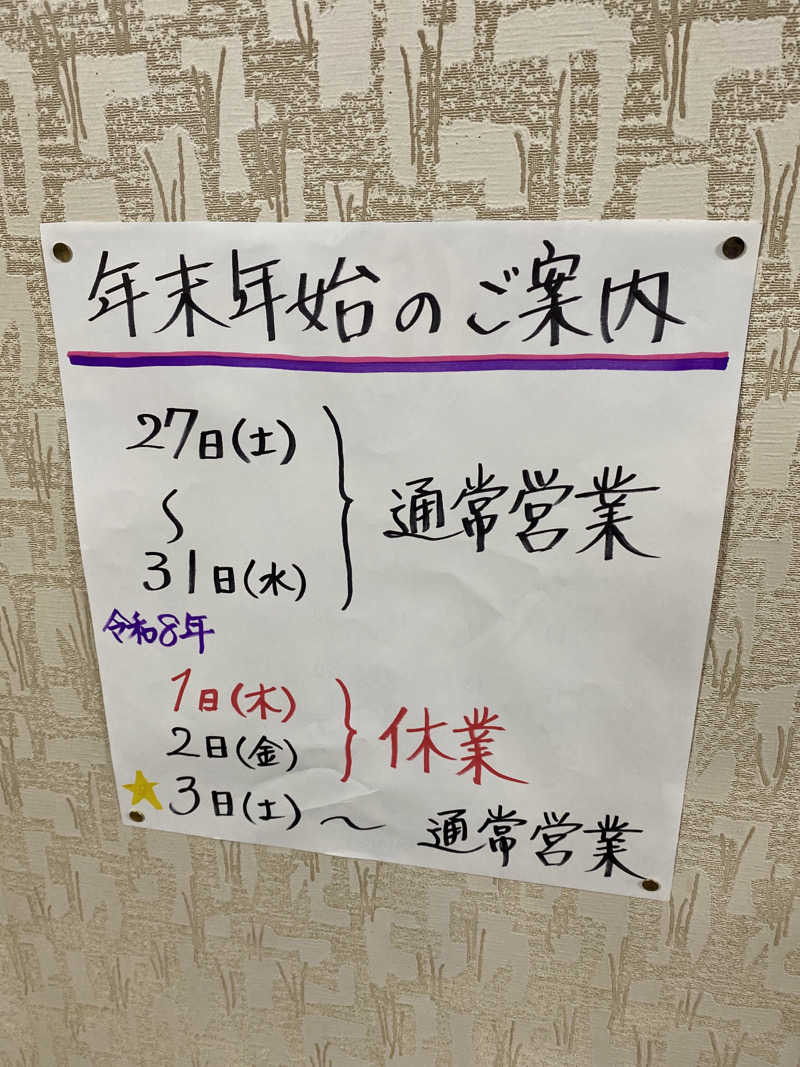 年末年始のご案内
27日(土)
〜
31日(水)
通常営業
令和8年
1日(木)
2日(金)
休業
3日(土)〜 通常営業